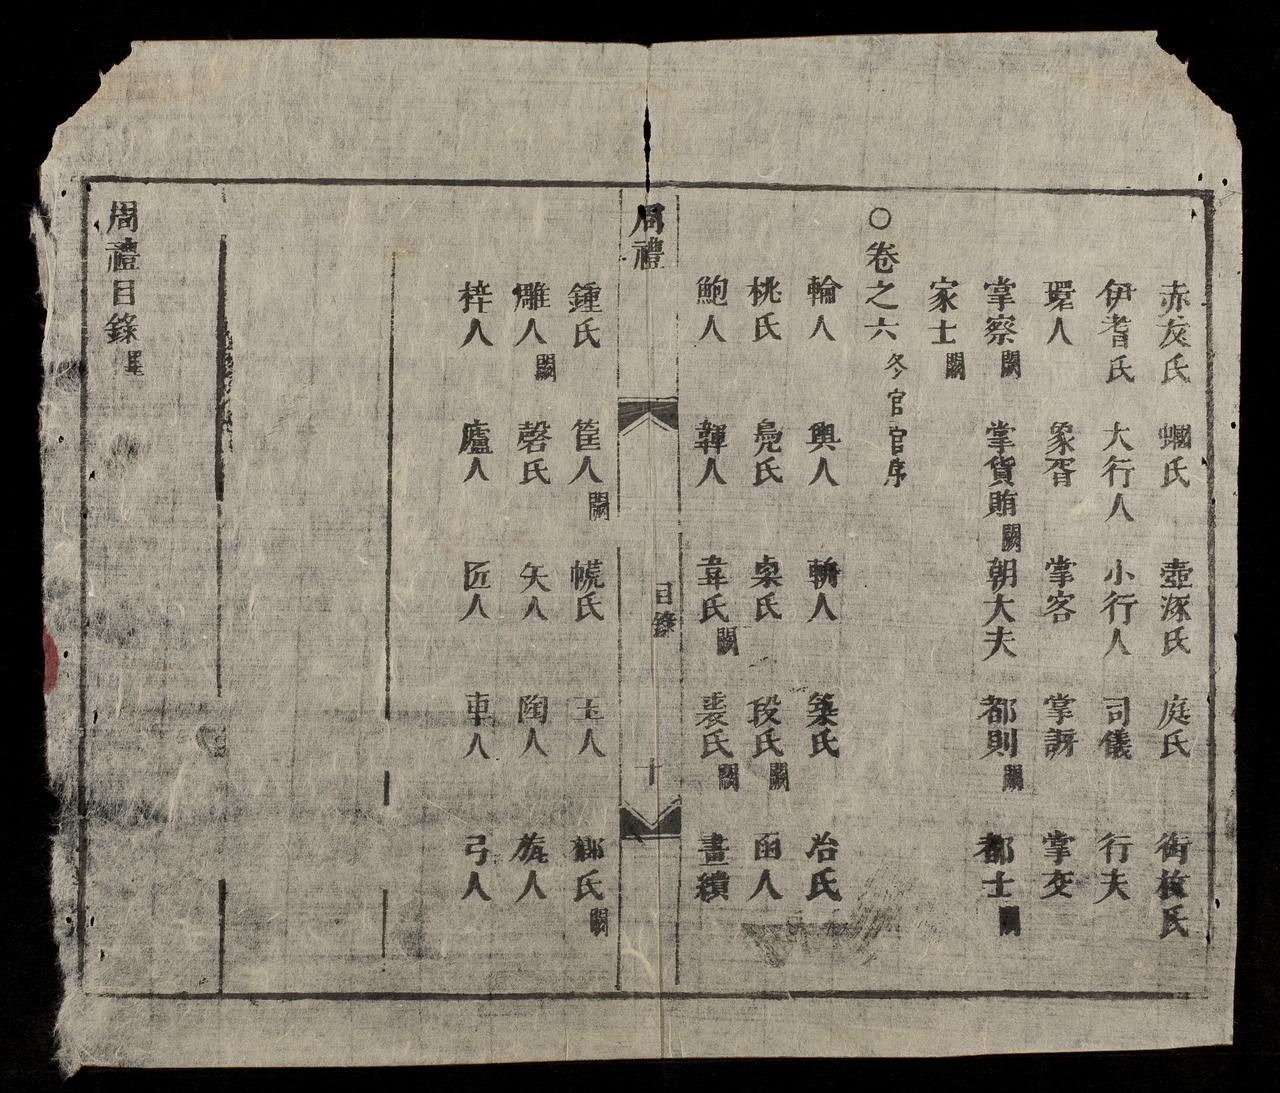 赤犮氏 蟈氏 壺涿氏 庭氏 銜枚氏
伊耆氏 大行人 小行人 司儀 行夫
環人 象胥 掌客 掌訝 掌交
掌察闕 掌貨賄闕 朝大夫 都則闕 都士闕
家士闕
○卷之六 冬官官序
輪人 輿人 輈人 築氏 冶氏
桃氏 鳧氏 㮚氏 段氏闕 函人
鮑人 韗人 韋氏闕 裘氏闕 畫繢
周禮 目錄 十
鍾氏 筐人闕 㡛氏 玉人 楖氏闕
雕人闕 磬氏 矢人 陶人 旊人
梓人 廬人 匠人 車人 弓人
周禮目錄畢